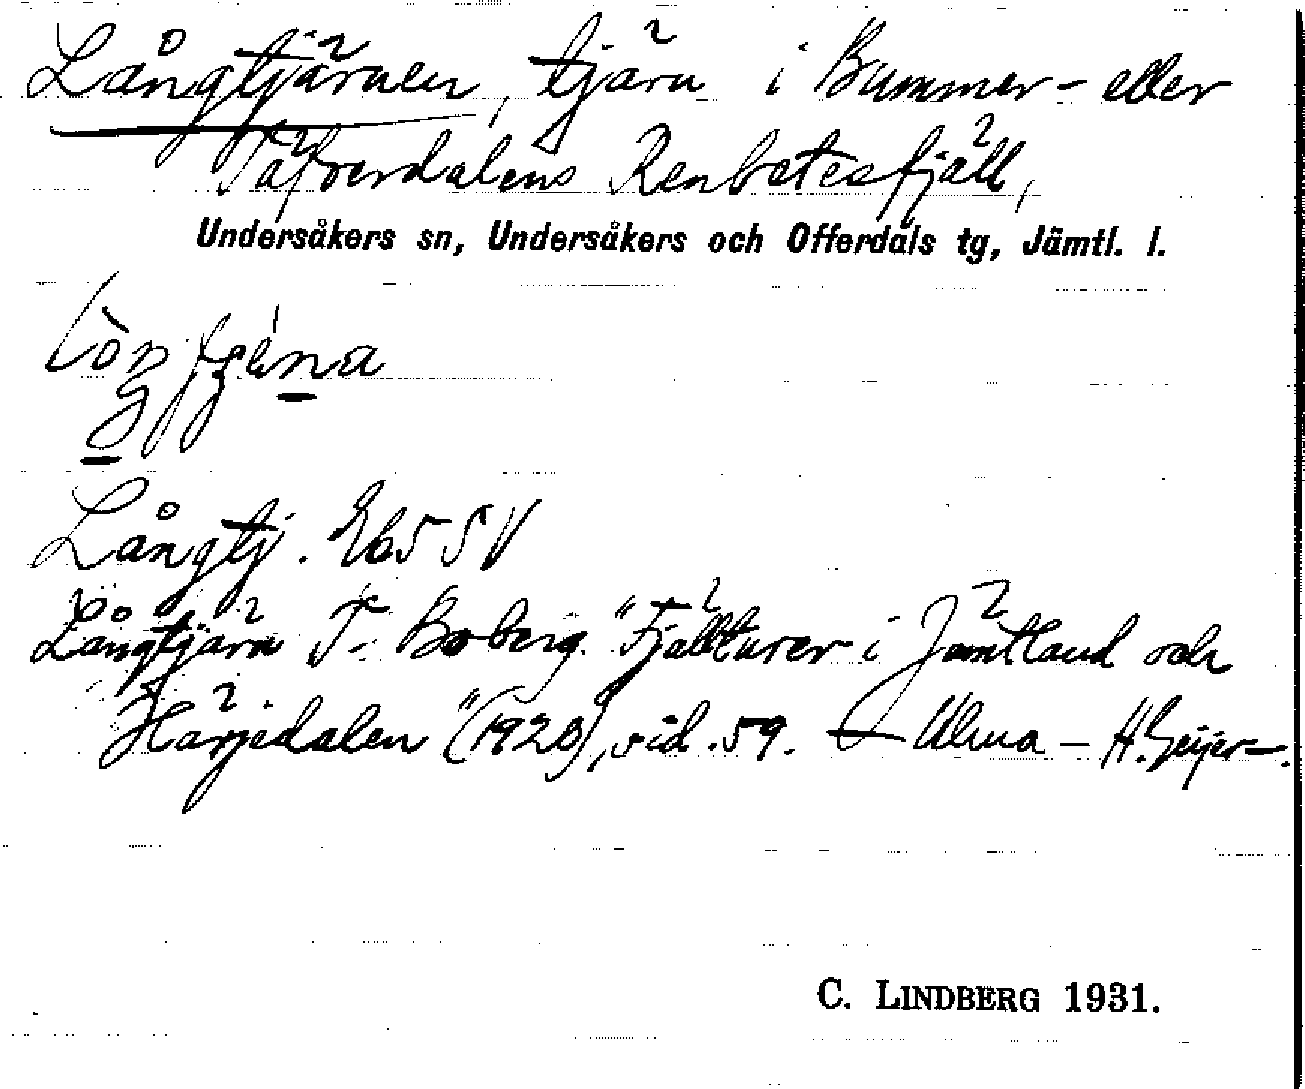 Långtjärnen, tjärn i Bummer- eller
Täfverdalens Renbetesfjäll,
Undersåkers sn, Undersåkers och Offerdals tg, Jämtl. l.
Långtj. Eb 55 V
Långtjärn T. Boberg. "Fjällturer i Jämtland och
Härjedalen" (1928), sid. 59. Alma – H. Geijer –.
C. LINDBERG 1931.